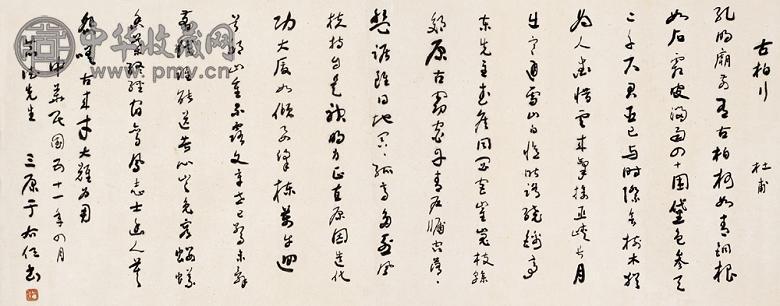 古柏行 杜甫
孔明廟前有古柏柯如青銅根
如石霜皮溜雨四十圍黛色參天
二千尺君臣已與時際會樹木猶
為人愛惜雲來氣接巫峽長月
出寒通雪山白憶昨路繞錦亭
東先主武侯同閟宮崔嵬枝幹
郊原古窈窕丹青戶牖空落落
盤踞雖得地冥冥孤高多烈風
扶持自是神明力正直原因造化
功大廈如傾要梁棟萬牛迴
首丘山重不露文章世已驚未辭
剪伐誰能送苦心豈免容螻蟻
香葉終經宿鸞鳳志士幽人莫
怨嗟古來材大難為用
中華民國五十一年四月
先生 三原于右任書
中华收藏网
www.pmv.cn